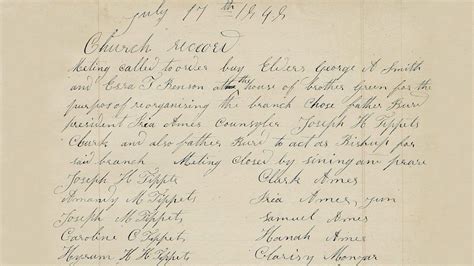 July 17th 1849
Church record
Meting called to order buy Elders George A Smith
and Ezra T Benson at the house of brother Green for the
purpos of reorganising the branch Chose father Burr
president Iria Ames Counsyler Joseph H Tippets
Clurk and also father Burr to act as Bishup for
said branch Meting closed by sining an prare
Joseph H Tippets Clark Ames
Amandy M Tippets Iria Ames jun
Joseph M Tippets Samuel Ames
Caroline C Tippets Hanah Ames
Hyrum H H Tippets Clarisy